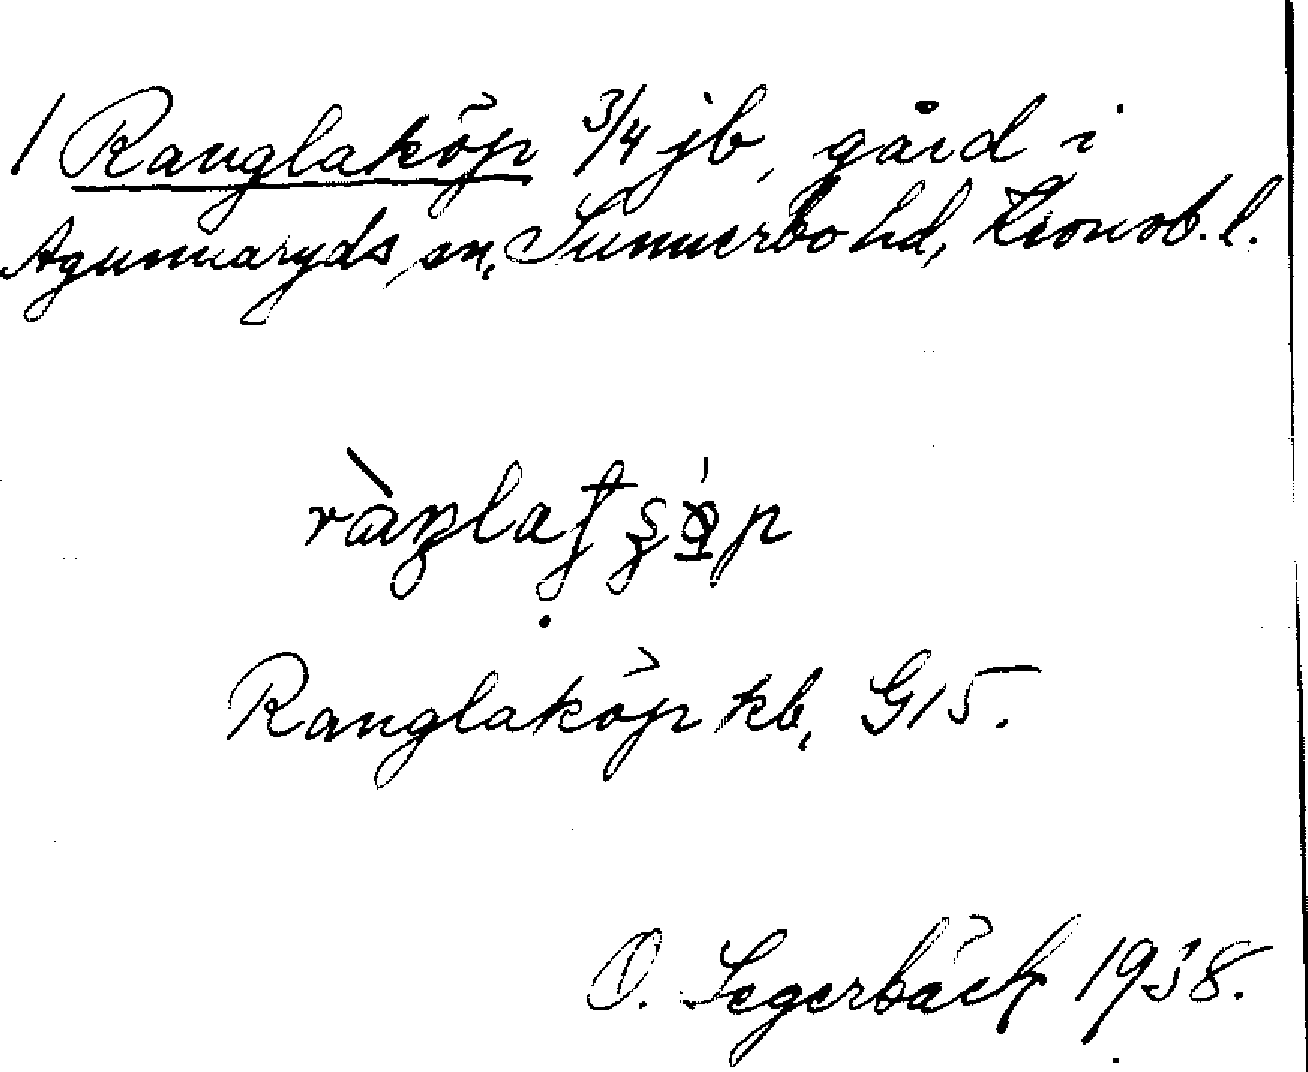 1 Ranglaköp 3/4 jb, gård i
Agunnaryds sn, Sunnerbo hd, Kronob. l.
Ranglaköp kb, G15.
O. Segerbäck 1938.